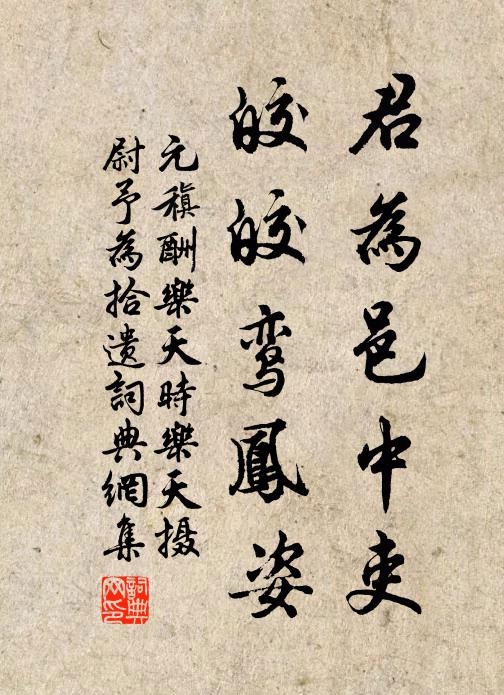 君為邑中吏
皎皎鸾鳳姿
元稹酬樂天時樂天摄
尉予為拾遺詞典網集
詞典
网印